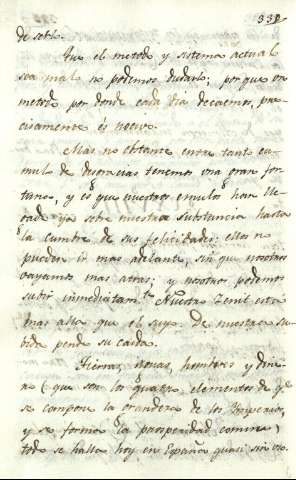 339
de serlo.
Que el metodo y sistema actual
sea malo no podemos dudarlo; porque un
metodo por donde cada dia decaemos, pre-
cisamente és nocivo.
Mas no obstante entre tanto cu-
mulo de desgracias tenemos una gran for-
tuna, y és q.e nuestros emulos han lle-
gado ya sobre nuestra substancia hasta
la cumbre de sus felicidades: ellos no
pueden ir mas adelante, sin que nosotros
vayamos mas atras; y nosotros podemos
subir inmediatam.te Nuestro Zenit está
mas alto que el suyo. De nuestra su-
bida pende su caida.
Tierras, minas, hombres y dine-
ro (que son los quatro elementos de q.e
se compone la grandeza de los Imperios,
y se forma la prosperidad comun)
todo se halla hoy en España quasi sin uso.